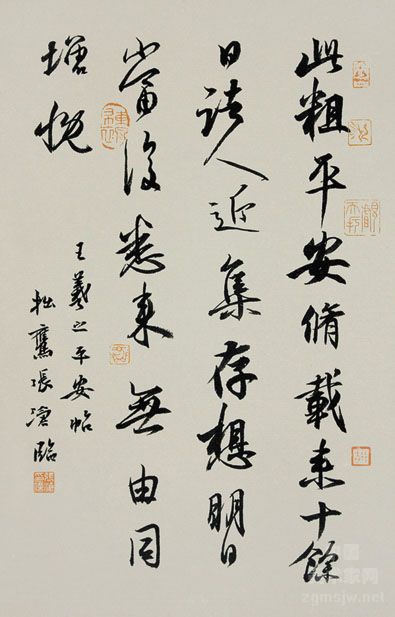 此粗平安脩載来十餘
日諸人近集存想明日
當復悉来無由同
增慨
王羲之平安帖
張滄臨
zgmsjw.net